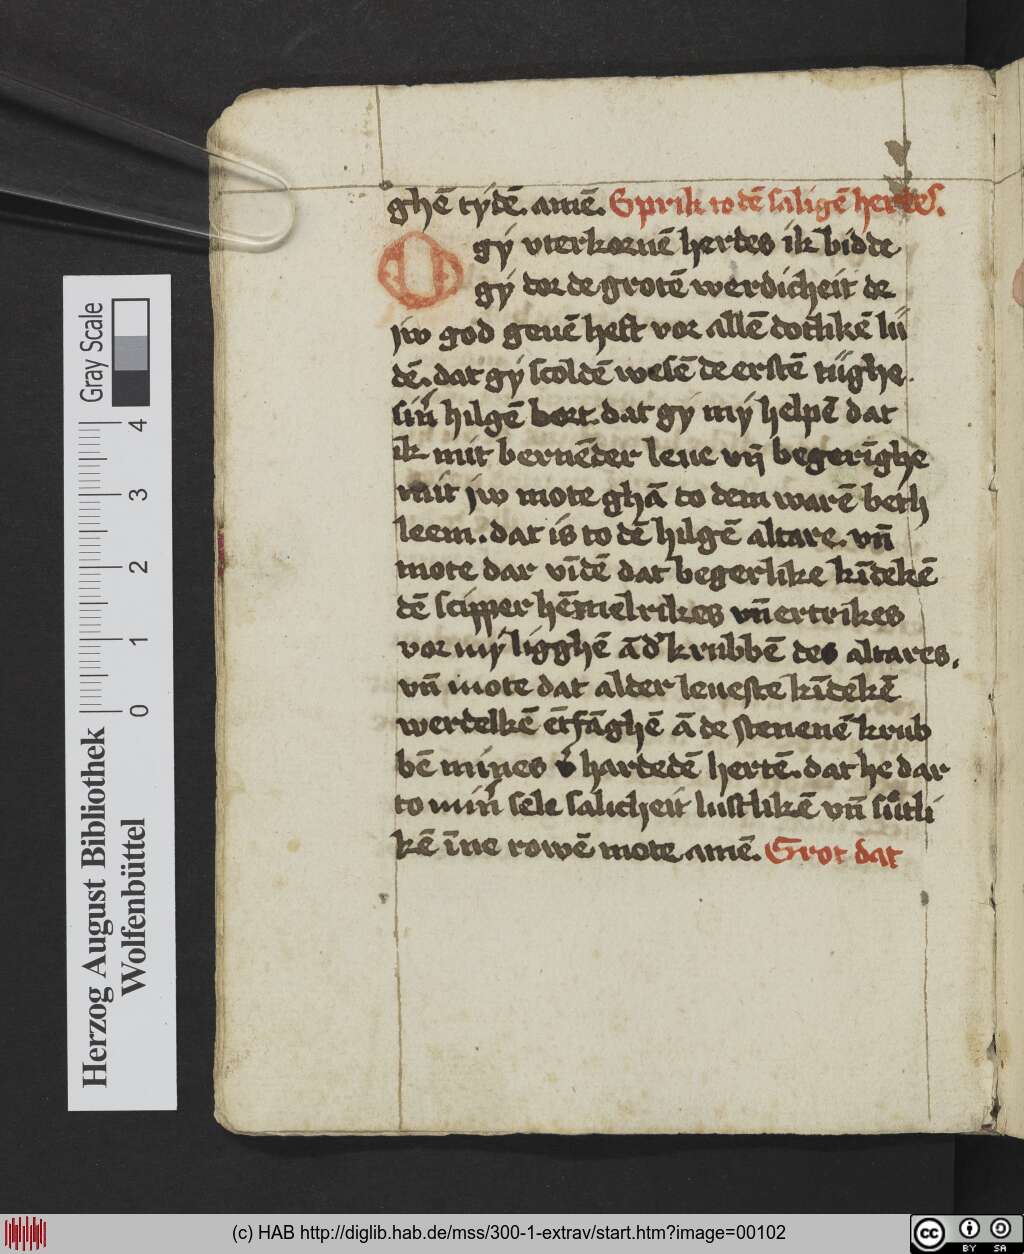 ghē tydē. amē. Sprik to dē saligē herdes.
O gy vterkornē herdes ik bidde
gy dor de grotē werdicheit de
jw god geuē heft vor allē dotlikē lü
dē. dat gy scoldē wesē de erstē tüghe.
sin̄ hilgē bort. dat gy my helpē dat
ik mit bernēder leue vn̄ begerīghe
mit jw mote ghā to dem warē beth
leem. dat is to dē hilgē altare. vn̄
mote dar vīdē dat begerlike kīdekē
dē scipper hēmelrikes vn̄ ertrikes
vor my ligghē ā d' krubbē des altares.
vn̄ mote dat alder leueste kīdekē
werdelkē ētfāghē ā de stenenē krub
bē mines v' hardedē hertē. dat he dar
to min' sele salicheit lustlikē vn̄ sůtli
kē īne rowē mote. amē. Grot dat
Gray Scale
0 1 2 3 4
Herzog August Bibliothek
Wolfenbüttel
(c) HAB http://diglib.hab.de/mss/300-1-extrav/start.htm?image=00102
cc BY SA